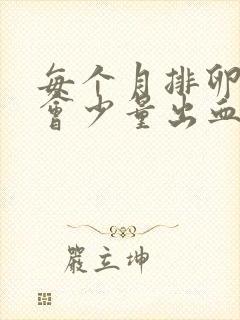 每个月排卵
會少量出血
嚴立坤